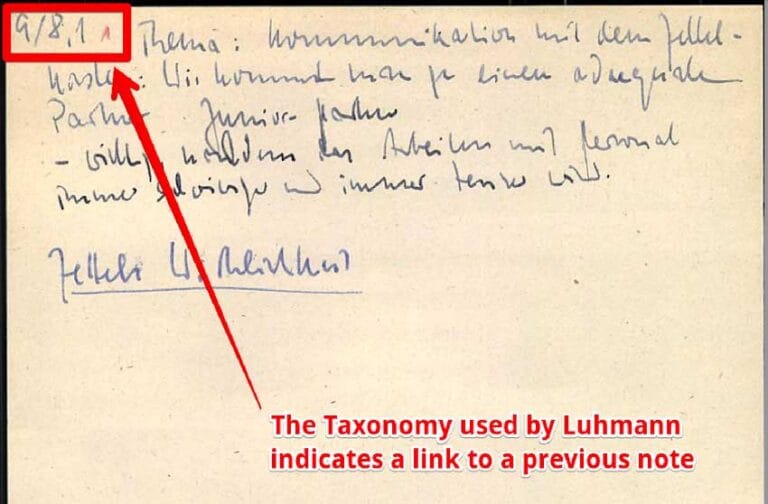 9/8,1 1 Thema: Kommunikation mit dem Zettel-
kasten: Wie kommt man zu einem adäquaten
Partner Junior-Partner
- wichtig, nachdem das Arbeiten mit Personal
immer schwieriger und immer teurer wird.
Zettels Wirklichkeit
The Taxonomy used by Luhmann
indicates a link to a previous note